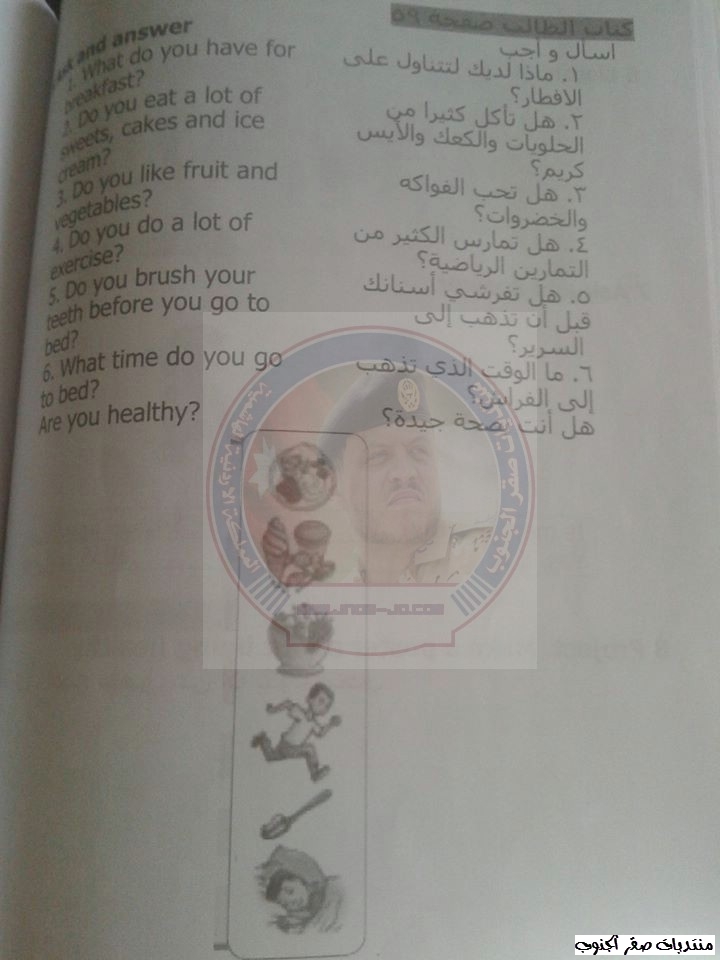 كتاب الطالب صفحة ٥٩
Ask and answer
1. What do you have for
breakfast?
2. Do you eat a lot of
sweets, cakes and ice
cream?
3. Do you like fruit and
vegetables?
4. Do you do a lot of
exercise?
5. Do you brush your
teeth before you go to
bed?
6. What time do you go
to bed?
Are you healthy?
اسأل و أجب
١. ماذا لديك لتتناول على
الافطار؟
٢. هل تأكل كثيرا من
الحلويات والكعك والأيس
كريم؟
٣. هل تحب الفواكه
والخضروات؟
٤. هل تمارس الكثير من
التمارين الرياضية؟
٥. هل تفرشي أسنانك
قبل أن تذهب إلى
السرير؟
٦. ما الوقت الذي تذهب
إلى الفراش؟
هل أنت بصحة جيدة؟
المملكة الاردنية الهاشمية
صقر الجنوب
منتديات صقر الجنوب